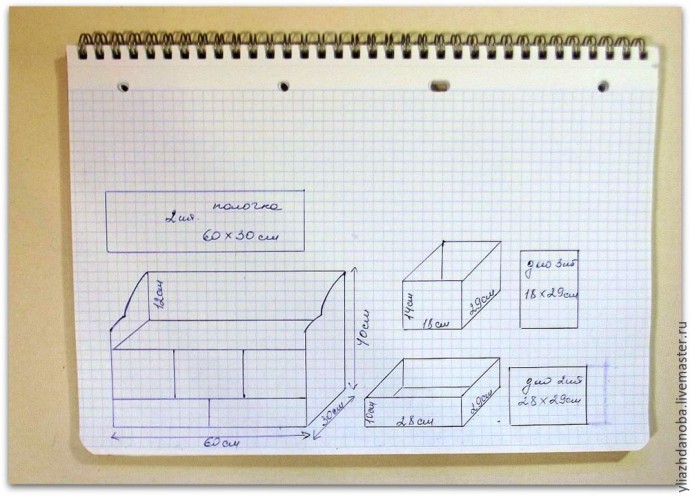 полочка
2 шт.
60 × 30 см
12 см
40 см
30 см
60 см
14 см
18 см
29 см
дно 3 шт
18 × 29 см
10 см
28 см
29 см
дно 2 шт
28 × 29 см
yliazhdanoba.livemaster.ru